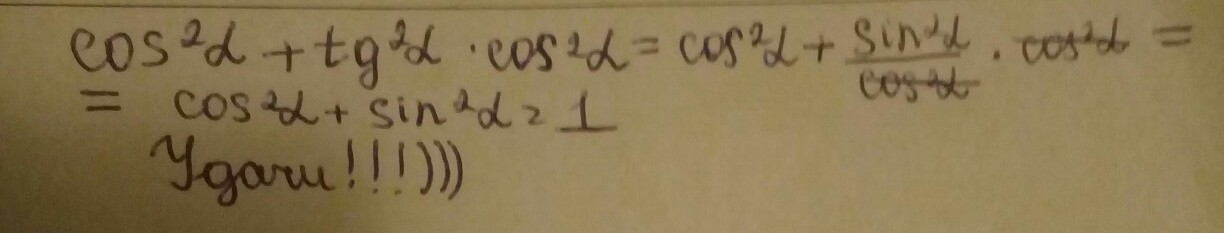 cos²α + tg²α · cos²α = cos²α + sin²α/cos²α · cos²α =
= cos²α + sin²α = 1
Удачи!!!)))